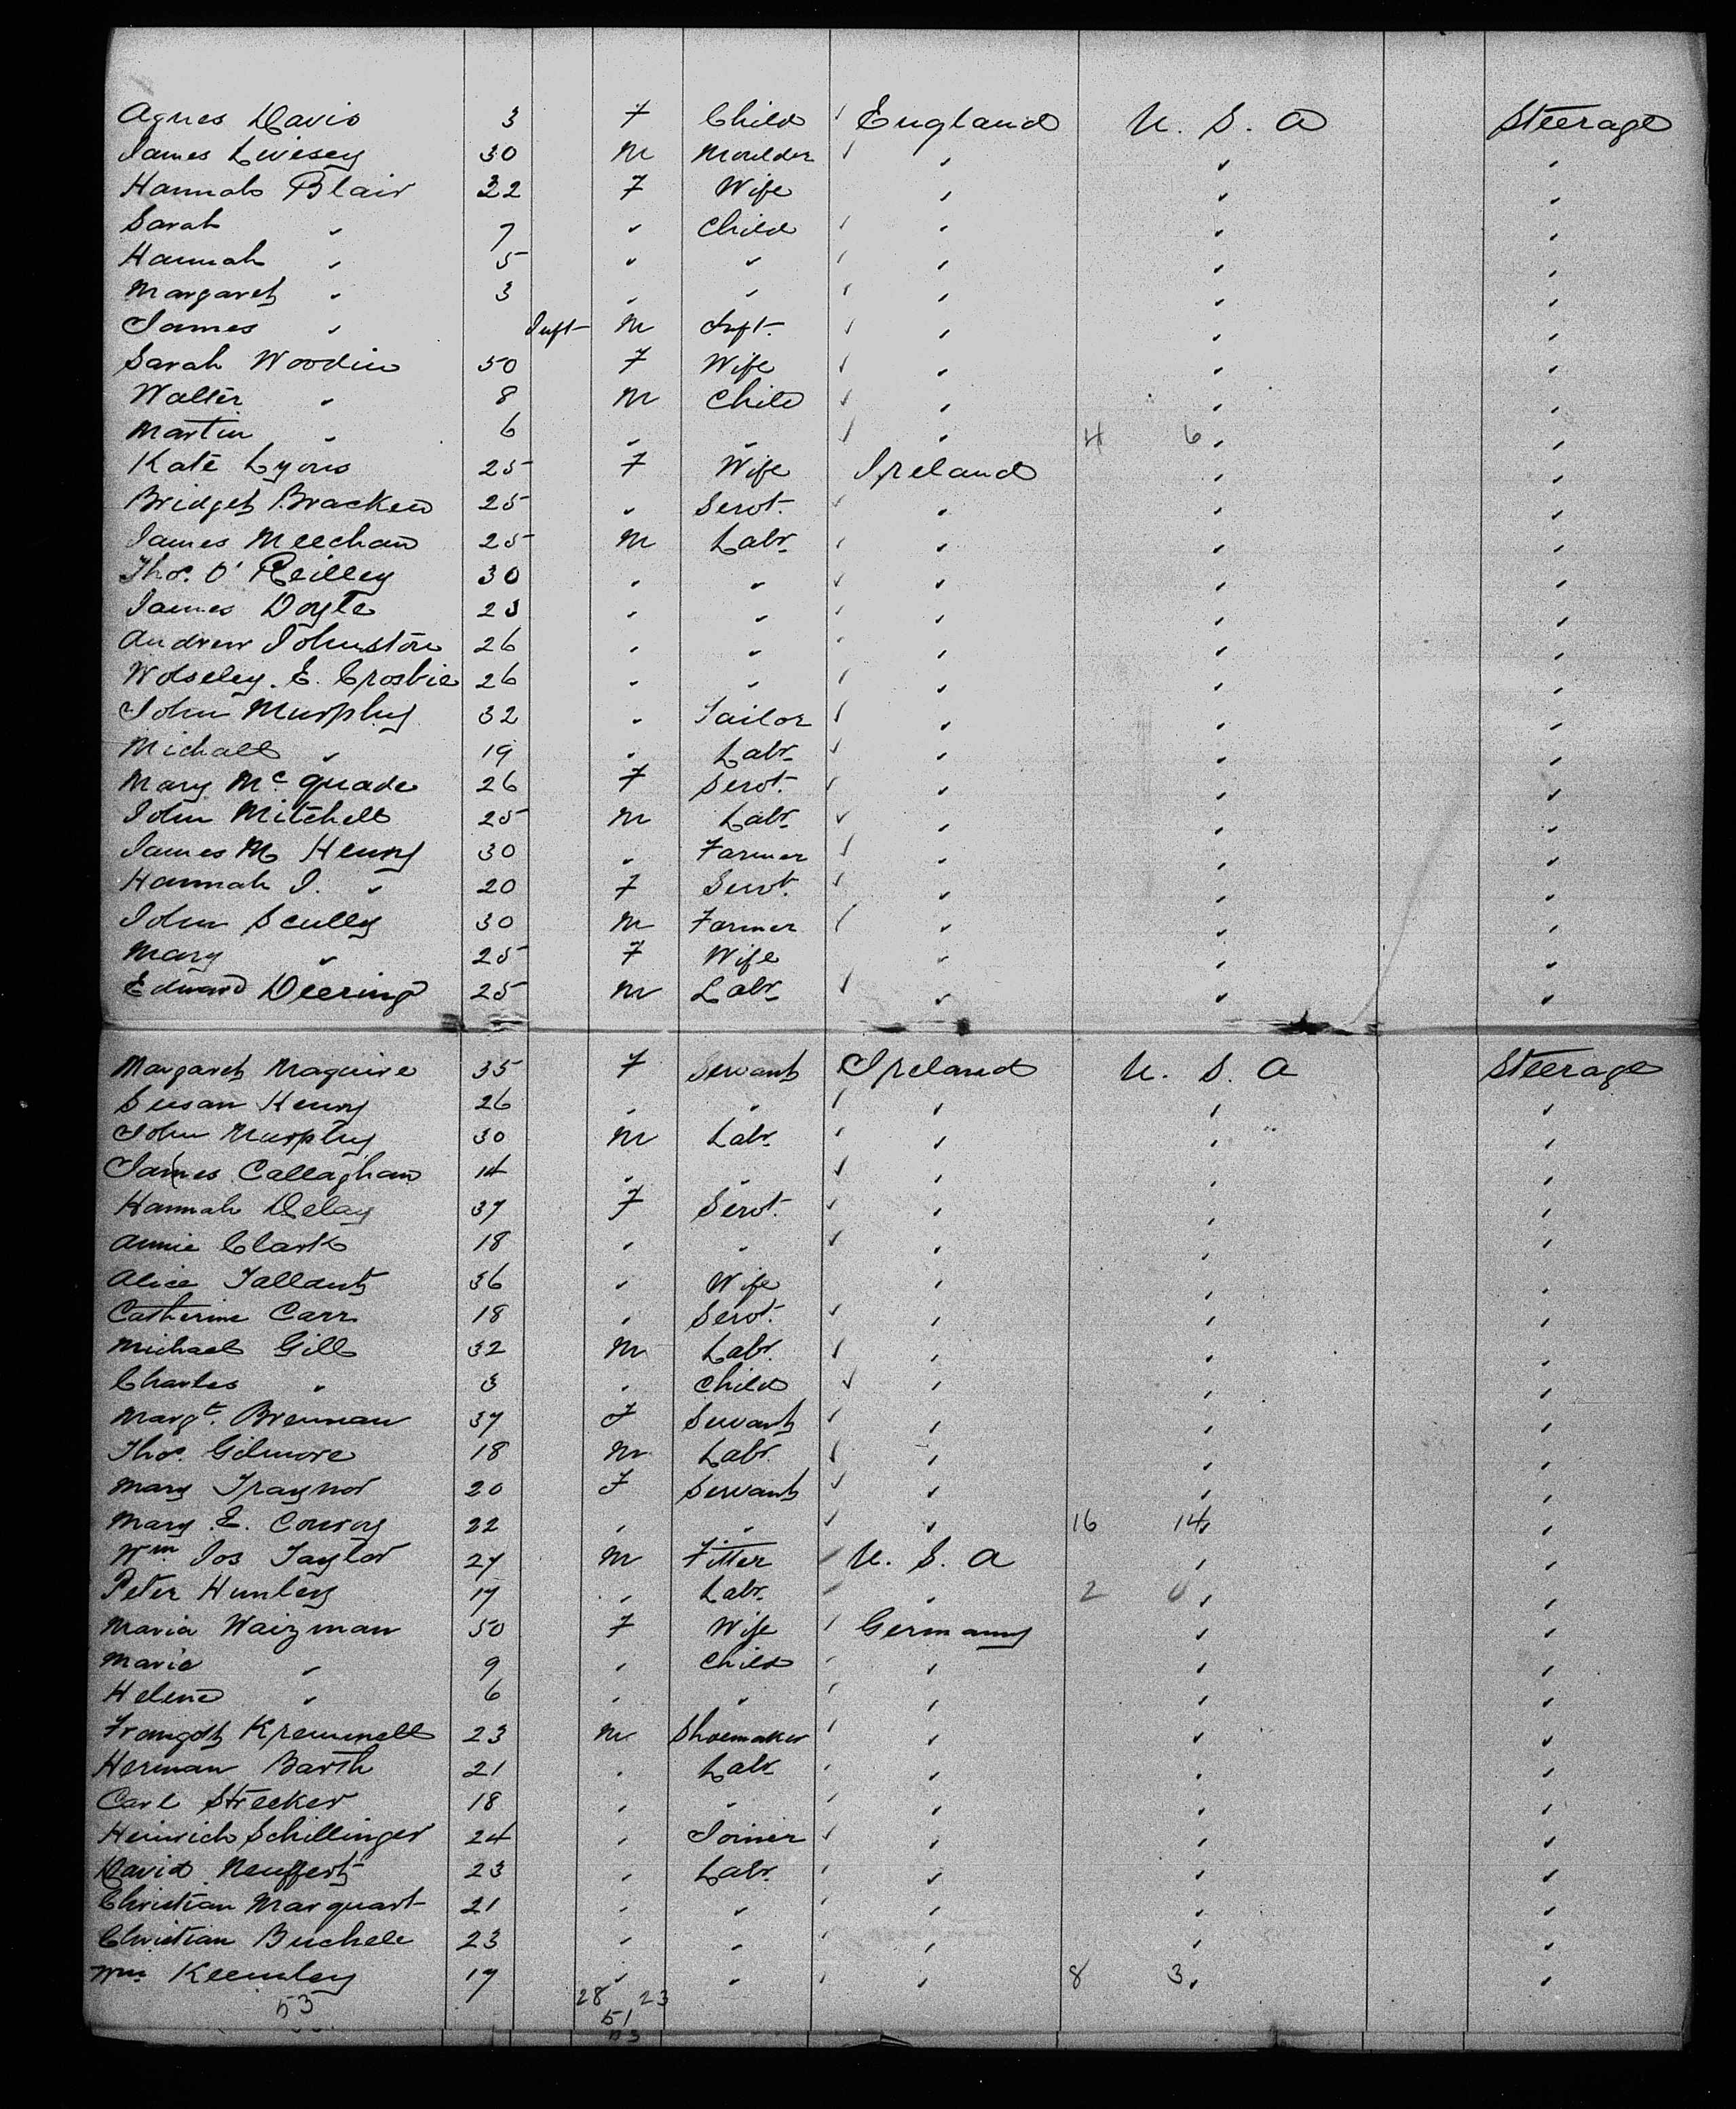 Agnes Davis 3 F Child ✓ England U. S. A Steerage
James Livesey 30 M Moulder ✓ " " "
Hannah Blair 32 F Wife " " "
Sarah " 7 " Child ✓ " " "
Hannah " 5 " " ✓ " " "
Margaret " 3 " " ✓ " " "
James " Inft M Inft. ✓ " " "
Sarah Woodin 50 F Wife ✓ " " "
Walter " 8 M Child ✓ " " "
Martin " 6 " " ✓ " 4 6 " "
Kate Lyons 25 F Wife Ireland " "
Bridget Bracken 25 " Servt. ✓ " " "
James Meechan 25 M Labr ✓ " " "
Thos. O' Reilley 30 " " ✓ " " "
James Doyle 23 " " ✓ " " "
Andrew Johnston 26 " " ✓ " " "
Wolseley. E. Crosbie 26 " " ✓ " " "
John Murphy 32 " Tailor ✓ " " "
Michael " 19 " Labr ✓ " " "
Mary Mc Quade 26 F Servt. ✓ " " "
John Mitchell 25 M Labr ✓ " " "
James M Henry 30 " Farmer ✓ " " "
Hannah J. " 20 F Servt. ✓ " " "
John Scully 30 M Farmer ✓ " " "
Mary " 25 F Wife " " "
Edward Deering 25 M Labr ✓ " " "
Margaret Maguire 35 F Servant Ireland U. S. A Steerage
Susan Henry 26 " " ✓ " " "
John Murphy 30 M Labr ✓ " " "
James Callaghan 14 " " ✓ " " "
Hannah Delay 37 F Servt. ✓ " " "
Annie Clark 18 " " ✓ " " "
Alice Tallant 36 " Wife " " "
Catherine Carr 18 " Servt. ✓ " " "
Michael Gill 32 M Labr. ✓ " " "
Charles " 3 " Child ✓ " " "
Margt. Brennan 37 F Servant ✓ " " "
Thos. Gilmore 18 M Labr. ✓ " " "
Mary Traynor 20 F Servant ✓ " " "
Mary E. Conroy 22 " " ✓ " 16 14 " "
Wm Jos Taylor 27 M Fitter ✓ U. S. A " "
Peter Hunley 17 " Labr. ✓ " 2 0 " "
Maria Waizman 50 F Wife ✓ Germany " "
Marie " 9 " Child ✓ " " "
Helene " 6 " " ✓ " " "
23 M Shoemaker ✓ " " "
Herman Barth 21 " Labr ✓ " " "
Carl Strecker 18 " " ✓ " " "
Heinrich Schillinger 24 " Joiner ✓ " " "
David Neuffert 23 " Labr. ✓ " " "
Christian Marquart 21 " " ✓ " " "
Christian Buchele 23 " " ✓ " " "
Wm Keemley 17 " " ✓ " 8 3 " "
53 28 23
51
53